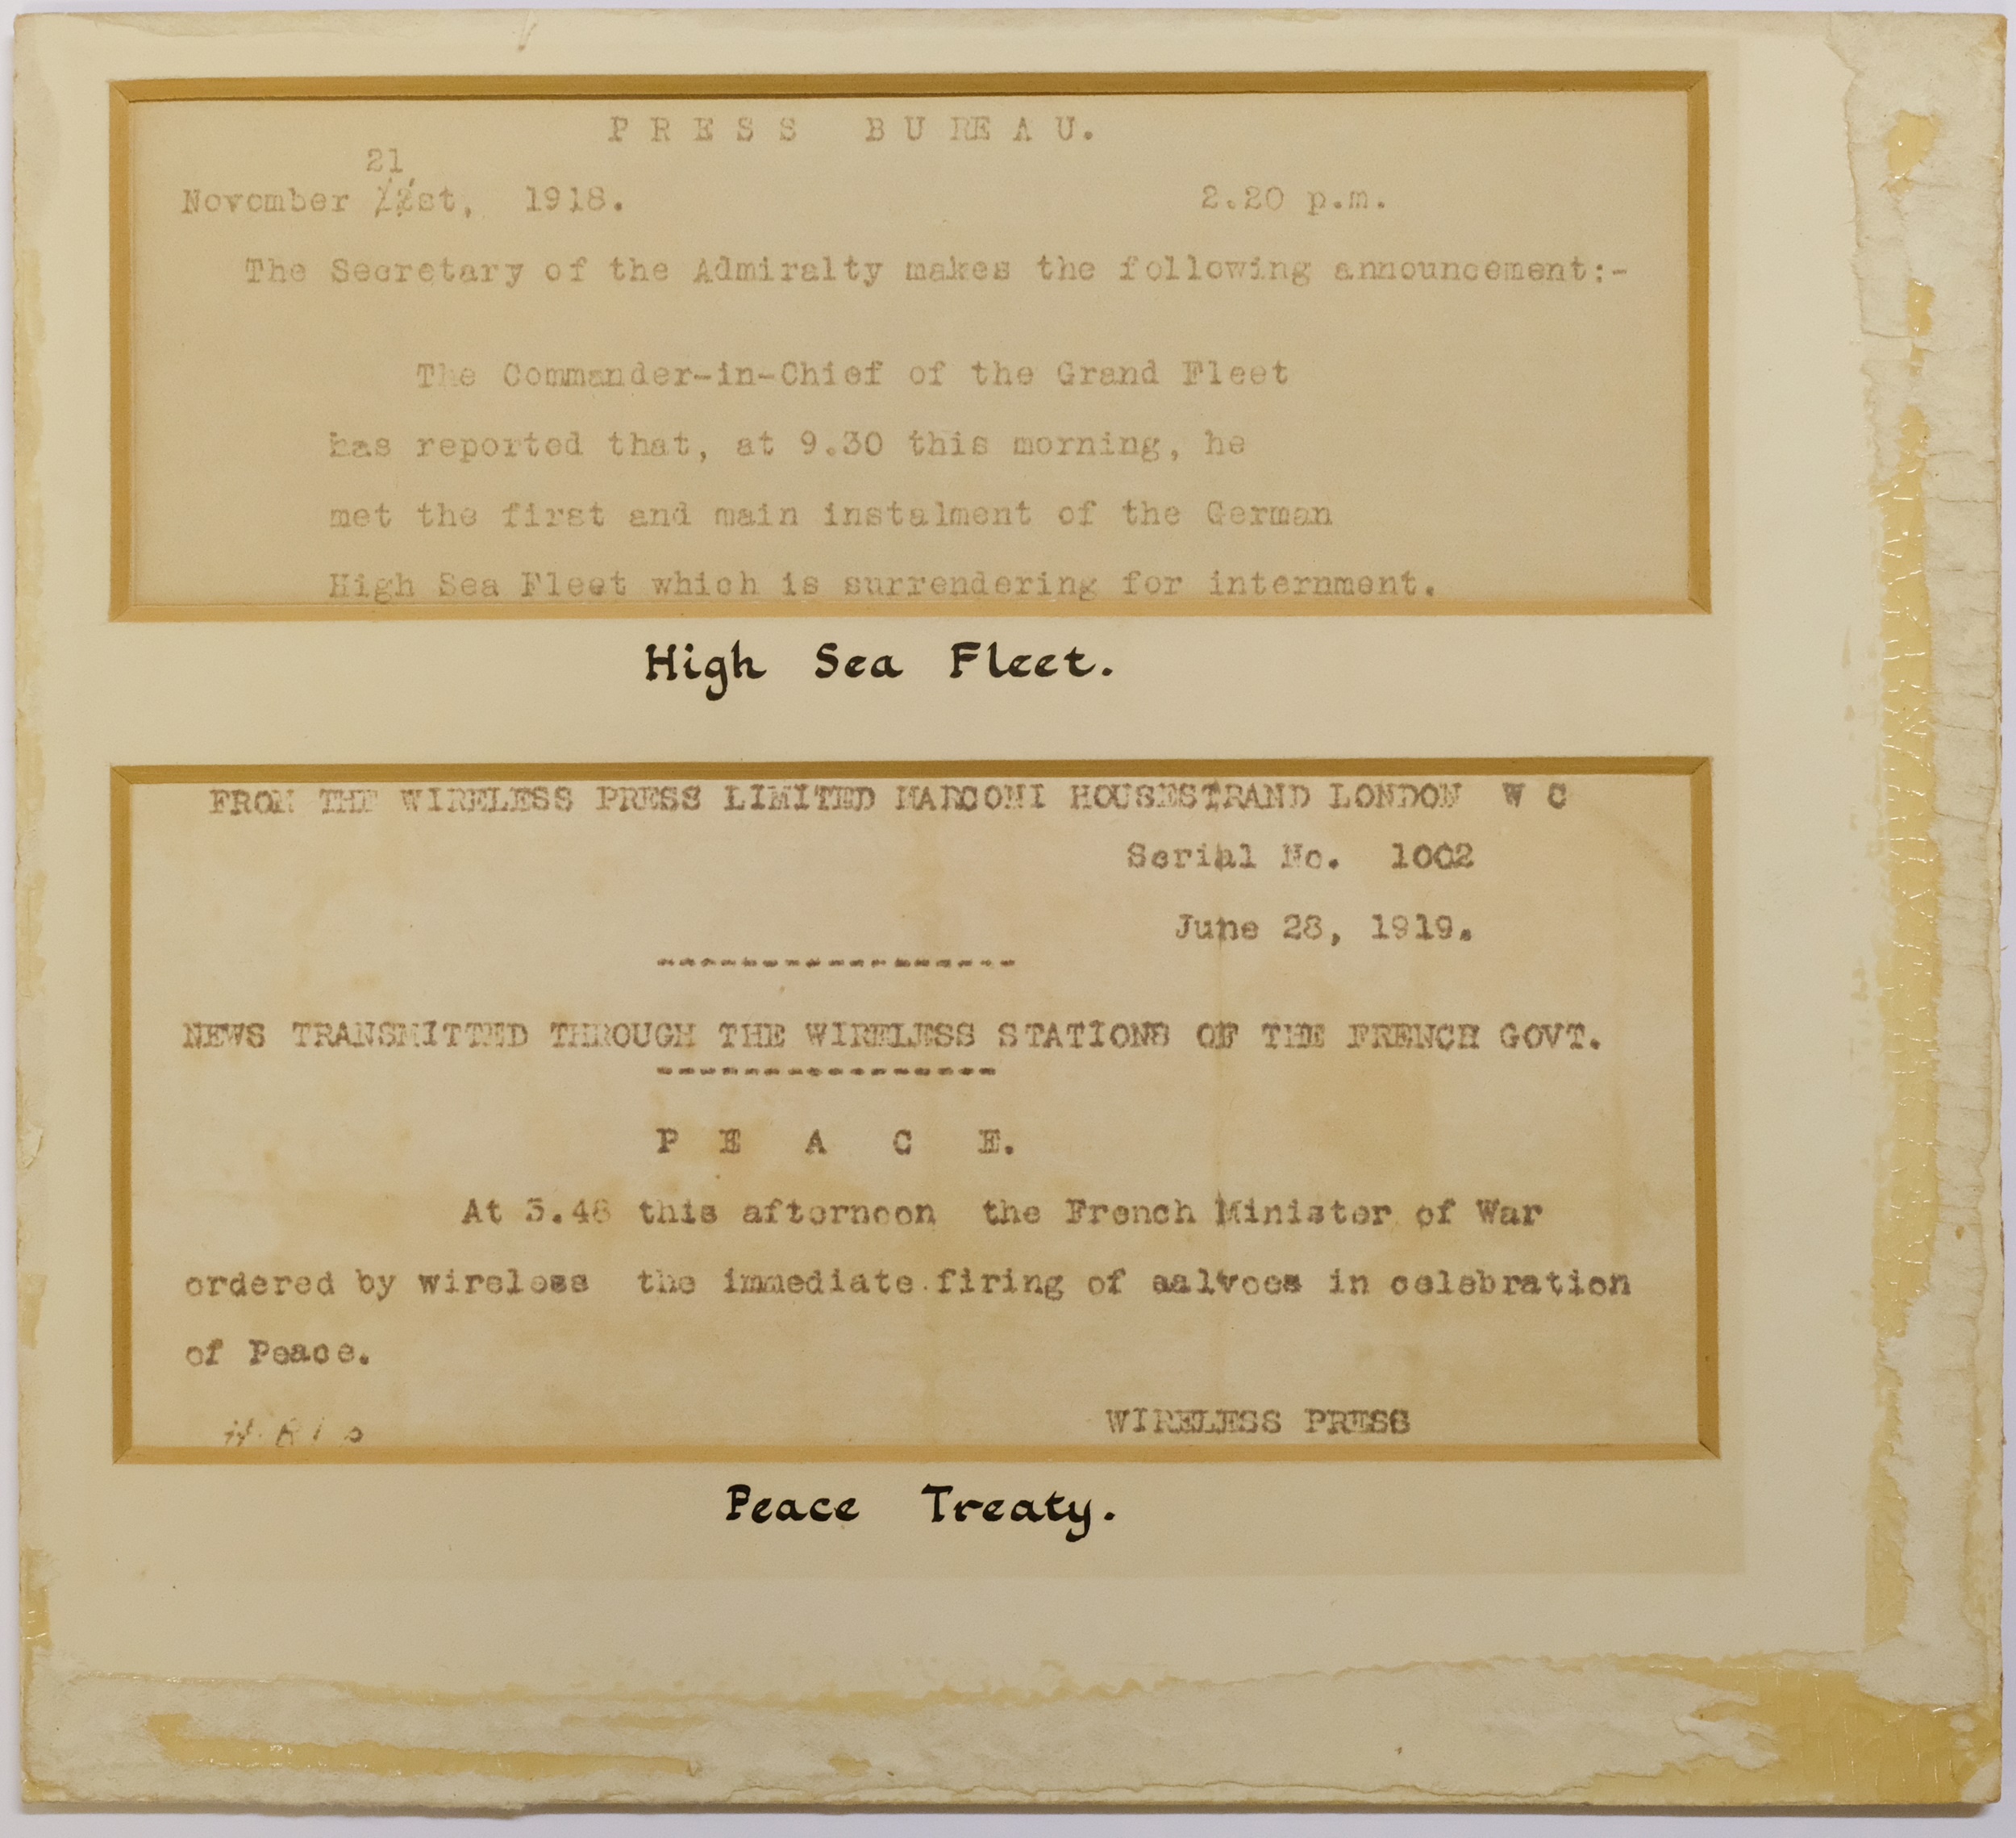 PRESS BUREAU.
21
November 12st, 1918. 2.20 p.m.
The Secretary of the Admiralty makes the following announcement:-
The Commander-in-Chief of the Grand Fleet
has reported that, at 9.30 this morning, he
met the first and main instalment of the German
High Sea Fleet which is surrendering for internment.
High Sea Fleet.
FROM THE WIRELESS PRESS LIMITED MARCONI HOUSESTRAND LONDON W C
Serial No. 1002
June 28, 1919.
-----------------
NEWS TRANSMITTED THROUGH THE WIRELESS STATIONS OF THE FRENCH GOVT.
----------------
P E A C E.
At 3.48 this afternoon the French Minister of War
ordered by wireless the immediate firing of salvoes in celebration
of Peace.
WIRELESS PRESS
Peace Treaty.